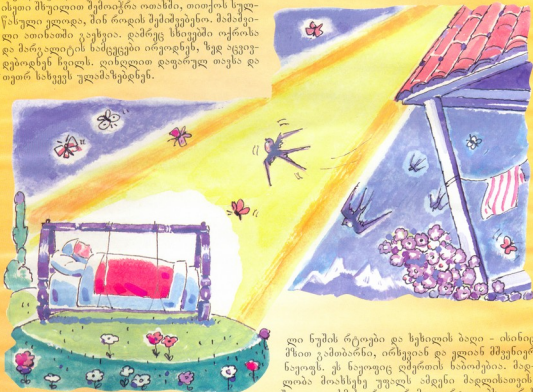 ისეთი შხუილით შემოიჭრა ოთახში, თითქოს სულ-
წასული ელოდა, შინ როდის შემიშვებენო. მამაშვი-
ლი ათინათში გაეხვია. დამრეც სხივებში ოქროსა
და მარგალიტის ნამცეცები ირეოდნენ, ზედ აცვივ-
დებოდნენ ჩვილს. ღინღლით დაფარულ თავსა და
თეთრ სახვევს ულამაზებდნენ.
ლი ნუშის რტოები და ხეხილის ბაღი - ისინიც
მზით გამთბარნი, ირხევიან და ელიან მშვენიერ
ნაყოფს. ეს ნაყოფიც ღმერთის ნაბოძებია. მად-
ლობა მოახსენე უფალს ამდენი მადლისათვის